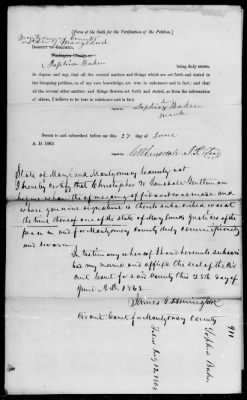 [Form of the Oath for the Verification of the Petition.]
Montgomery County
State of Maryland
District of Columbia,
Washington County, ss.
I, Sophia Baker being duly sworn,
do depose and say, that all the several matters and things which are set forth and stated in
the foregoing petition, as of my own knowledge, are true in substance and in fact; and that
all the several other matters and things therein set forth and stated, as from the information
of others, I believe to be true in substance and in fact.
Sophia Baker
mark
Sworn to and subscribed before me this 27 day of June
A. D. 1862.
State of Maryland Montgomery County sct
I hereby certify that Christopher Gentleman
before whom the aforegoing affidavit was made and
whose genuine signature is thereto subscribed was at
the time thereof one of the state of Maryland's Justices of the
peace in and for Montgomery County duly commissioned
and sworn
In testimony whereof I have hereunto subscri
bed my name and affix the seal of the Cir
cuit Court for said County this 28th day of
June A.D. 1862
James G. Henning Clk
Circuit Court for Montgomery County
Filed July 12, 1862
Sophia Baker
911